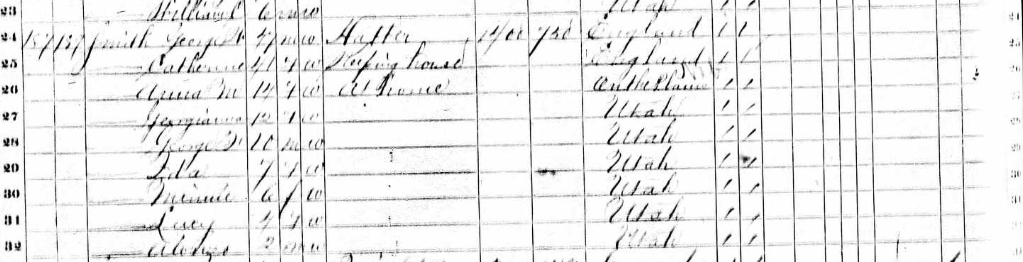 23 William 6 m w Utah 1 1
24 137 137 Smith George 47 m w Hatter 1400 750 England 1 1
25 Catherine 41 f w Keeping house England 1 1
26 Anna M 14 f w At home 1 1
27 Georgianna 12 f w Utah 1 1
28 George 10 m w Utah 1 1
29 Ida 7 f w Utah 1 1
30 Minnie 6 f w Utah 1 1
31 Lucy 4 f w Utah 1 1
32 Alonzo 2 m w Utah 1 1